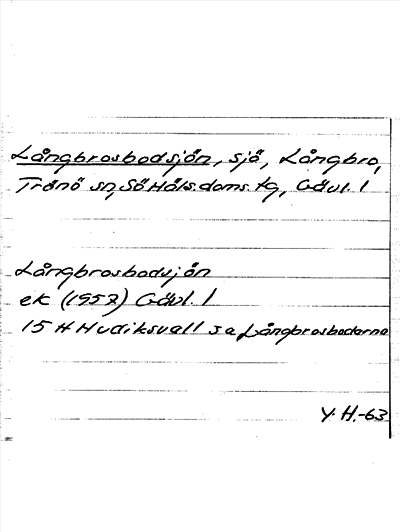 Långbrosbodsjön, sjö, Långbro,
Trönö sn, Sö Häls. doms. tg, Gävl. l
Långbrosbodsjön
ek (1957) Gävl. l
15 H Hudiksvall s a Långbrosbodarna
Y. H. -63